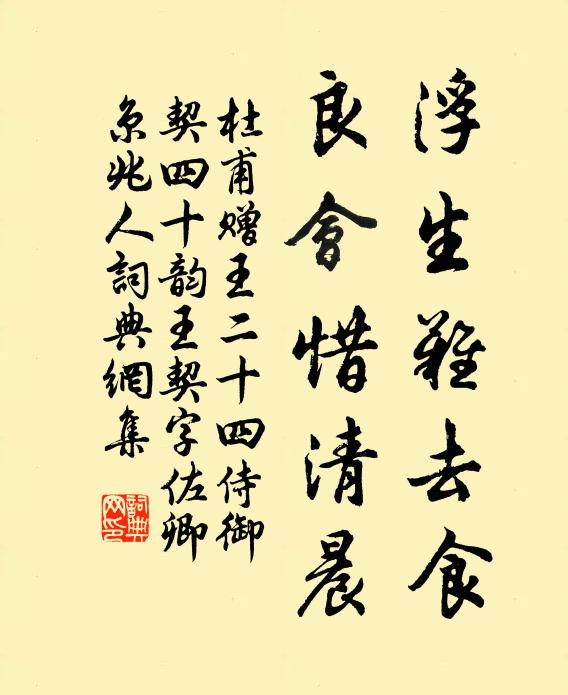 浮生難去食
良會惜清晨
杜甫赠王二十四侍御
契四十韵王契字佐卿
京兆人詞典網集
詞典网印